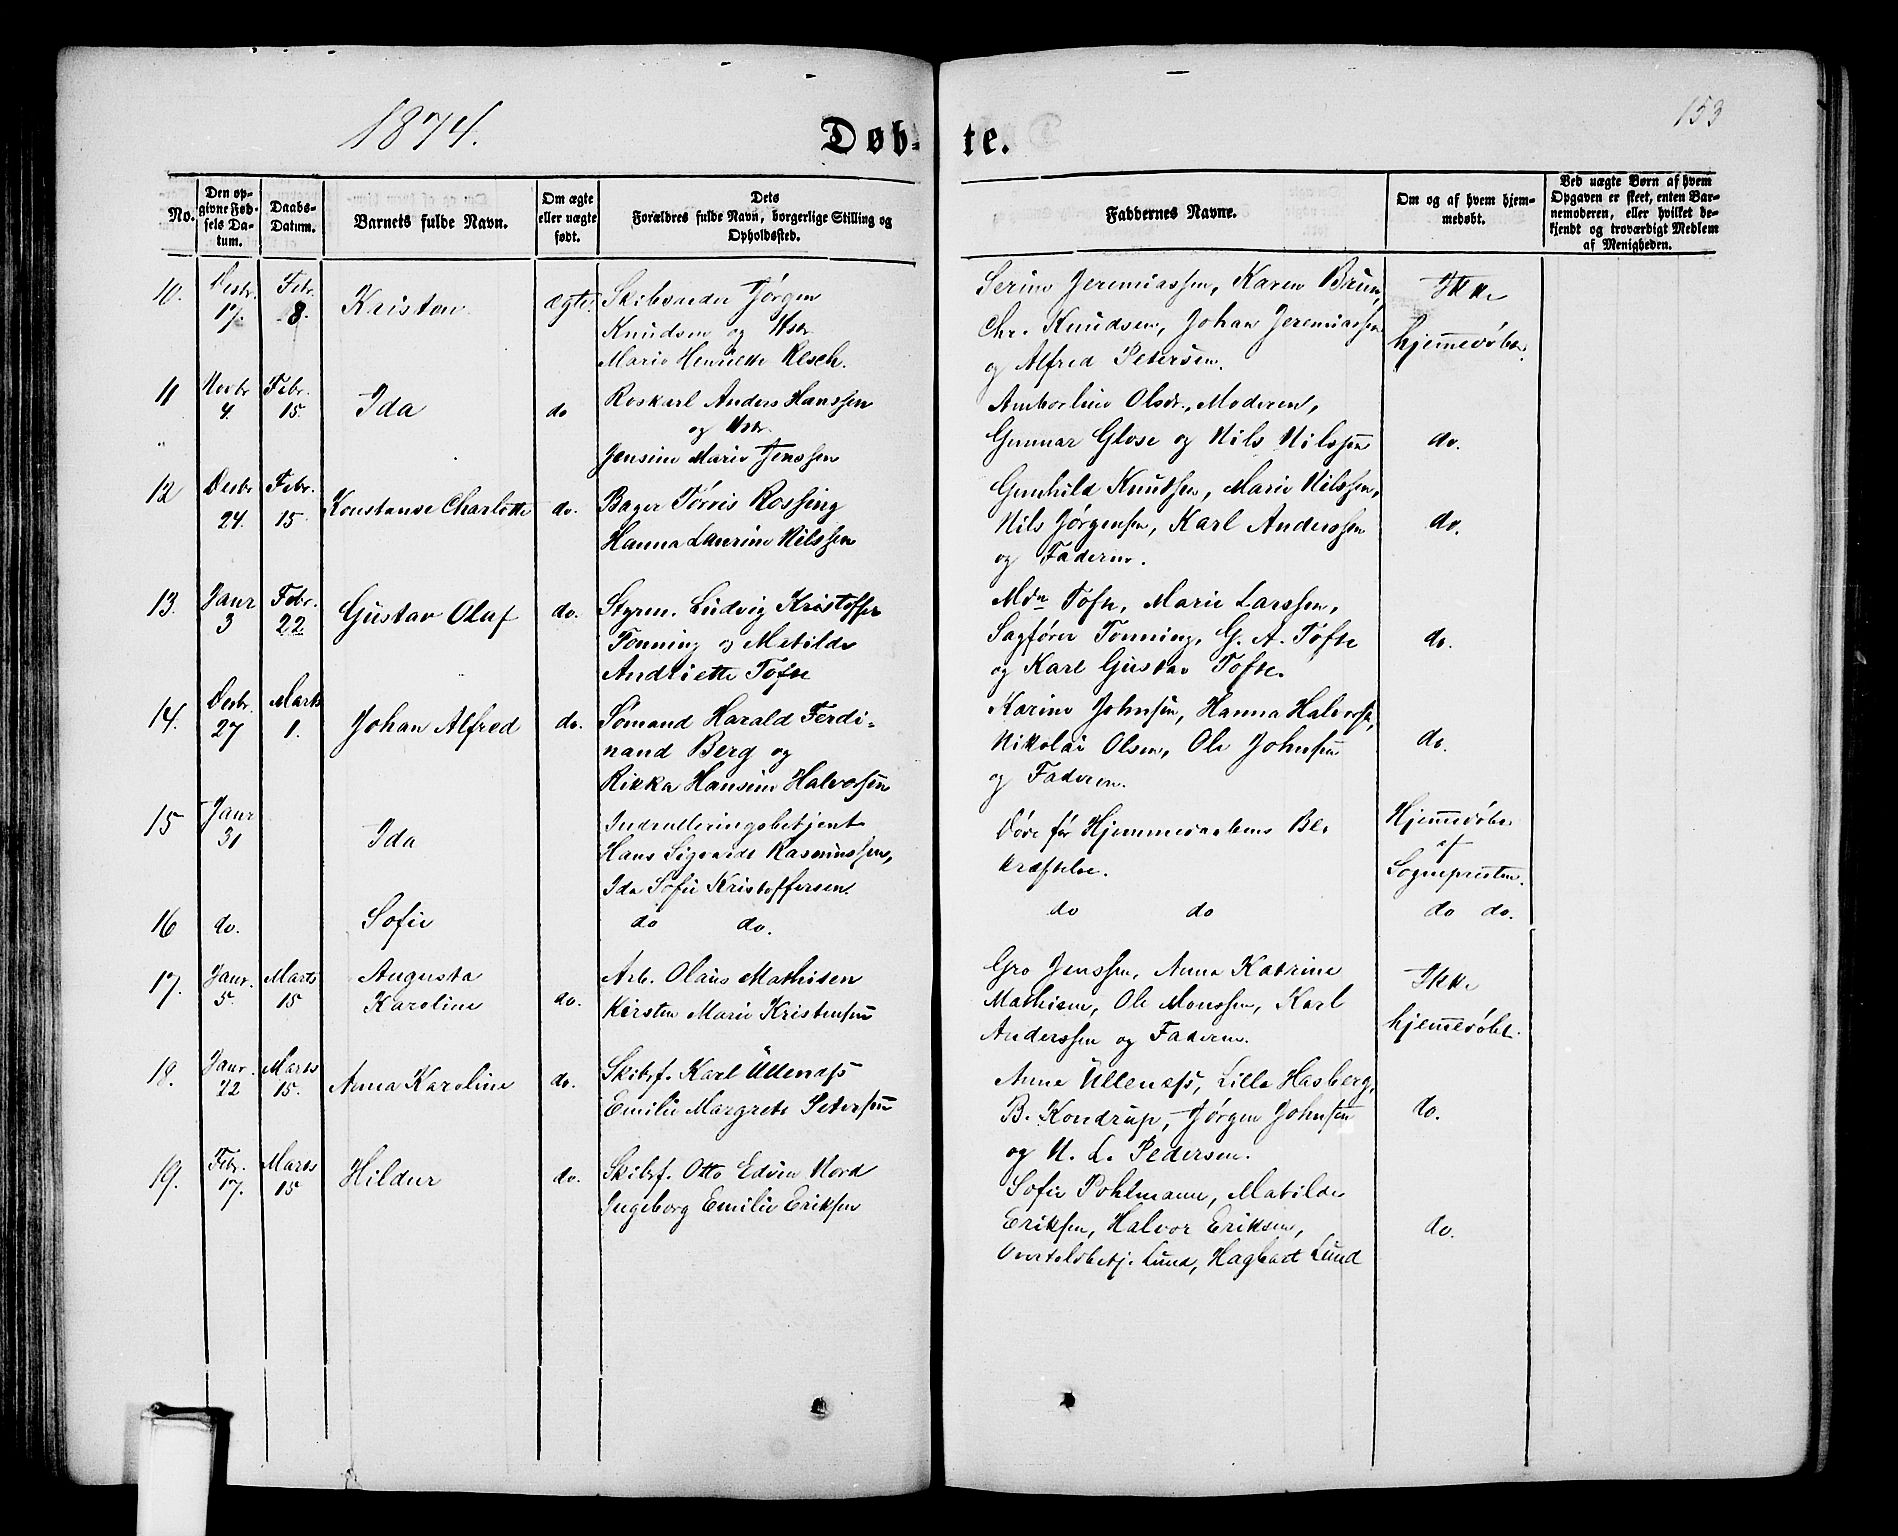 1874.
153
Døb-
te.
No.
Den op-
givne Fød-
sels Da-
tum.
Daabs-
Datum.
Barnets fulde Navn.
Om ægte
eller uægte
født.
Dets
Forældres fulde Navn, borgerlige Stilling og
Opholdssted.
Faddernes Navne.
Om og af hvem hjem-
medøbt.
Ved uægte Børn af hvem
Opgaven er skeet, enten Bar-
nemoderen, eller hvilket be-
kjendt og troværdigt Medlem
af Menigheden.
10. Desbr. 17. Febr. 8. Ægte. Skibsreder Jørgen
Knudsen og Hstr
Marie Henriette Resch.
Serine Jeremiassen, Karen Brun,
Chr. Knudsen, Johan Jeremiassen
og Alfred Petersen.
Ikke
hjemmedøbt.
11 Novbr 4. Febr. 15 Ida do Anders Hanssen
og Hstr.
Jensine Marie Jenssen
Olsdr., Moderen,
Gunnar Glose og Nils Nilssen
do.
12 Desbr 24. Febr. 15. Konstanse Charlotte do. Bager Tørris Rossing
Hanna Laurine Nilssen
Gunhild Knutsen, Marie Nilssen,
Nils Jørgensen, Karl Anderssen
og Faderen.
do.
13. Janr 3 Febr. 22 Gustav Olaf do. Styrm. Ludvig Kristoffer
Tonning og Matilde
Andriette Tofte
Mdm Tofte, Marie Larssen,
Sagfører Tonning, G. A. Tofte
og Karl Gustav Tofte.
do.
14. Desbr. 27 Marts 1. Johan Alfred do. Sømand Harald Ferdi-
nand Berg og
Rikka Hansine Halvorsen
Karine Johnsen, Hanna Halvorsen,
Nikolai Olsen, Ole Johnsen
og Faderen.
do.
15 Janr 31 Ida Indrulleringsbetjent
Hans Sigvardt Rasmussen,
Ida Sofie Kristoffersen
Døde før Hjemmedaabens Be-
kræftelse.
Hjemmedøbt
af
Sognepresten.
16 do. Sofie do do.
do do
do do.
17. Janr. 5. Marts 15 Augusta
Karoline do. Arb. Olaus Mathisen
Kirsten Marie Kristensen
Gro Jenssen, Anna Katrine
Mathisen, Ole Monssen, Karl
Anderssen og Faderen.
Ikke
hjemmedøbt.
18. Janr. 22 Marts 15. Anna Karoline do. Skibsf. Karl Ullenass
Emilie Margrete Petersen
Anne Ullenass, Lilla Hasberg,
B. Kondrup, Jørgen Johnsen
og N. L. Pedersen.
do.
19. Febr. 17. Marts 15 Hildur do. Skibsf. Otto Edvin Nord
Ingeborg Emilie Eriksen
Sofie Pohlmann, Matilde
Eriksen, Halvor Eriksen,
Lund, Hagbart Lund
do.